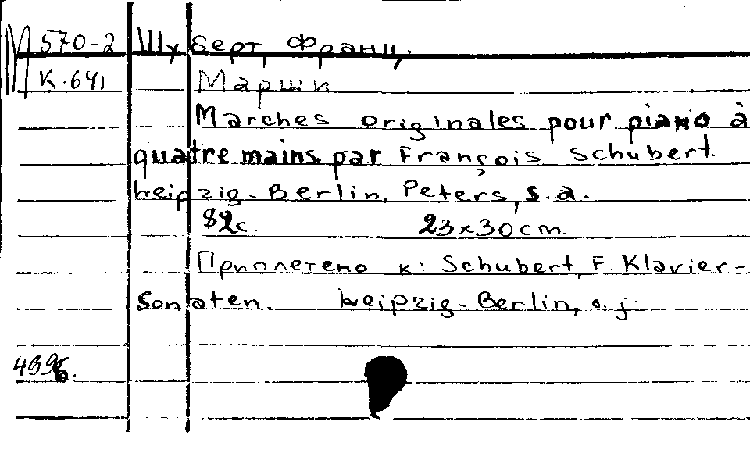 М 570-2 Шуберт, Франц.
К-641 Марши
Marches originales pour piano à
quatre mains par François Schubert.
Leipzig-Berlin, Peters, s.a.
82c. 23x30cm.
Приплетено к: Schubert, F. Klavier-
Sonaten. Leipzig-Berlin, s.j.